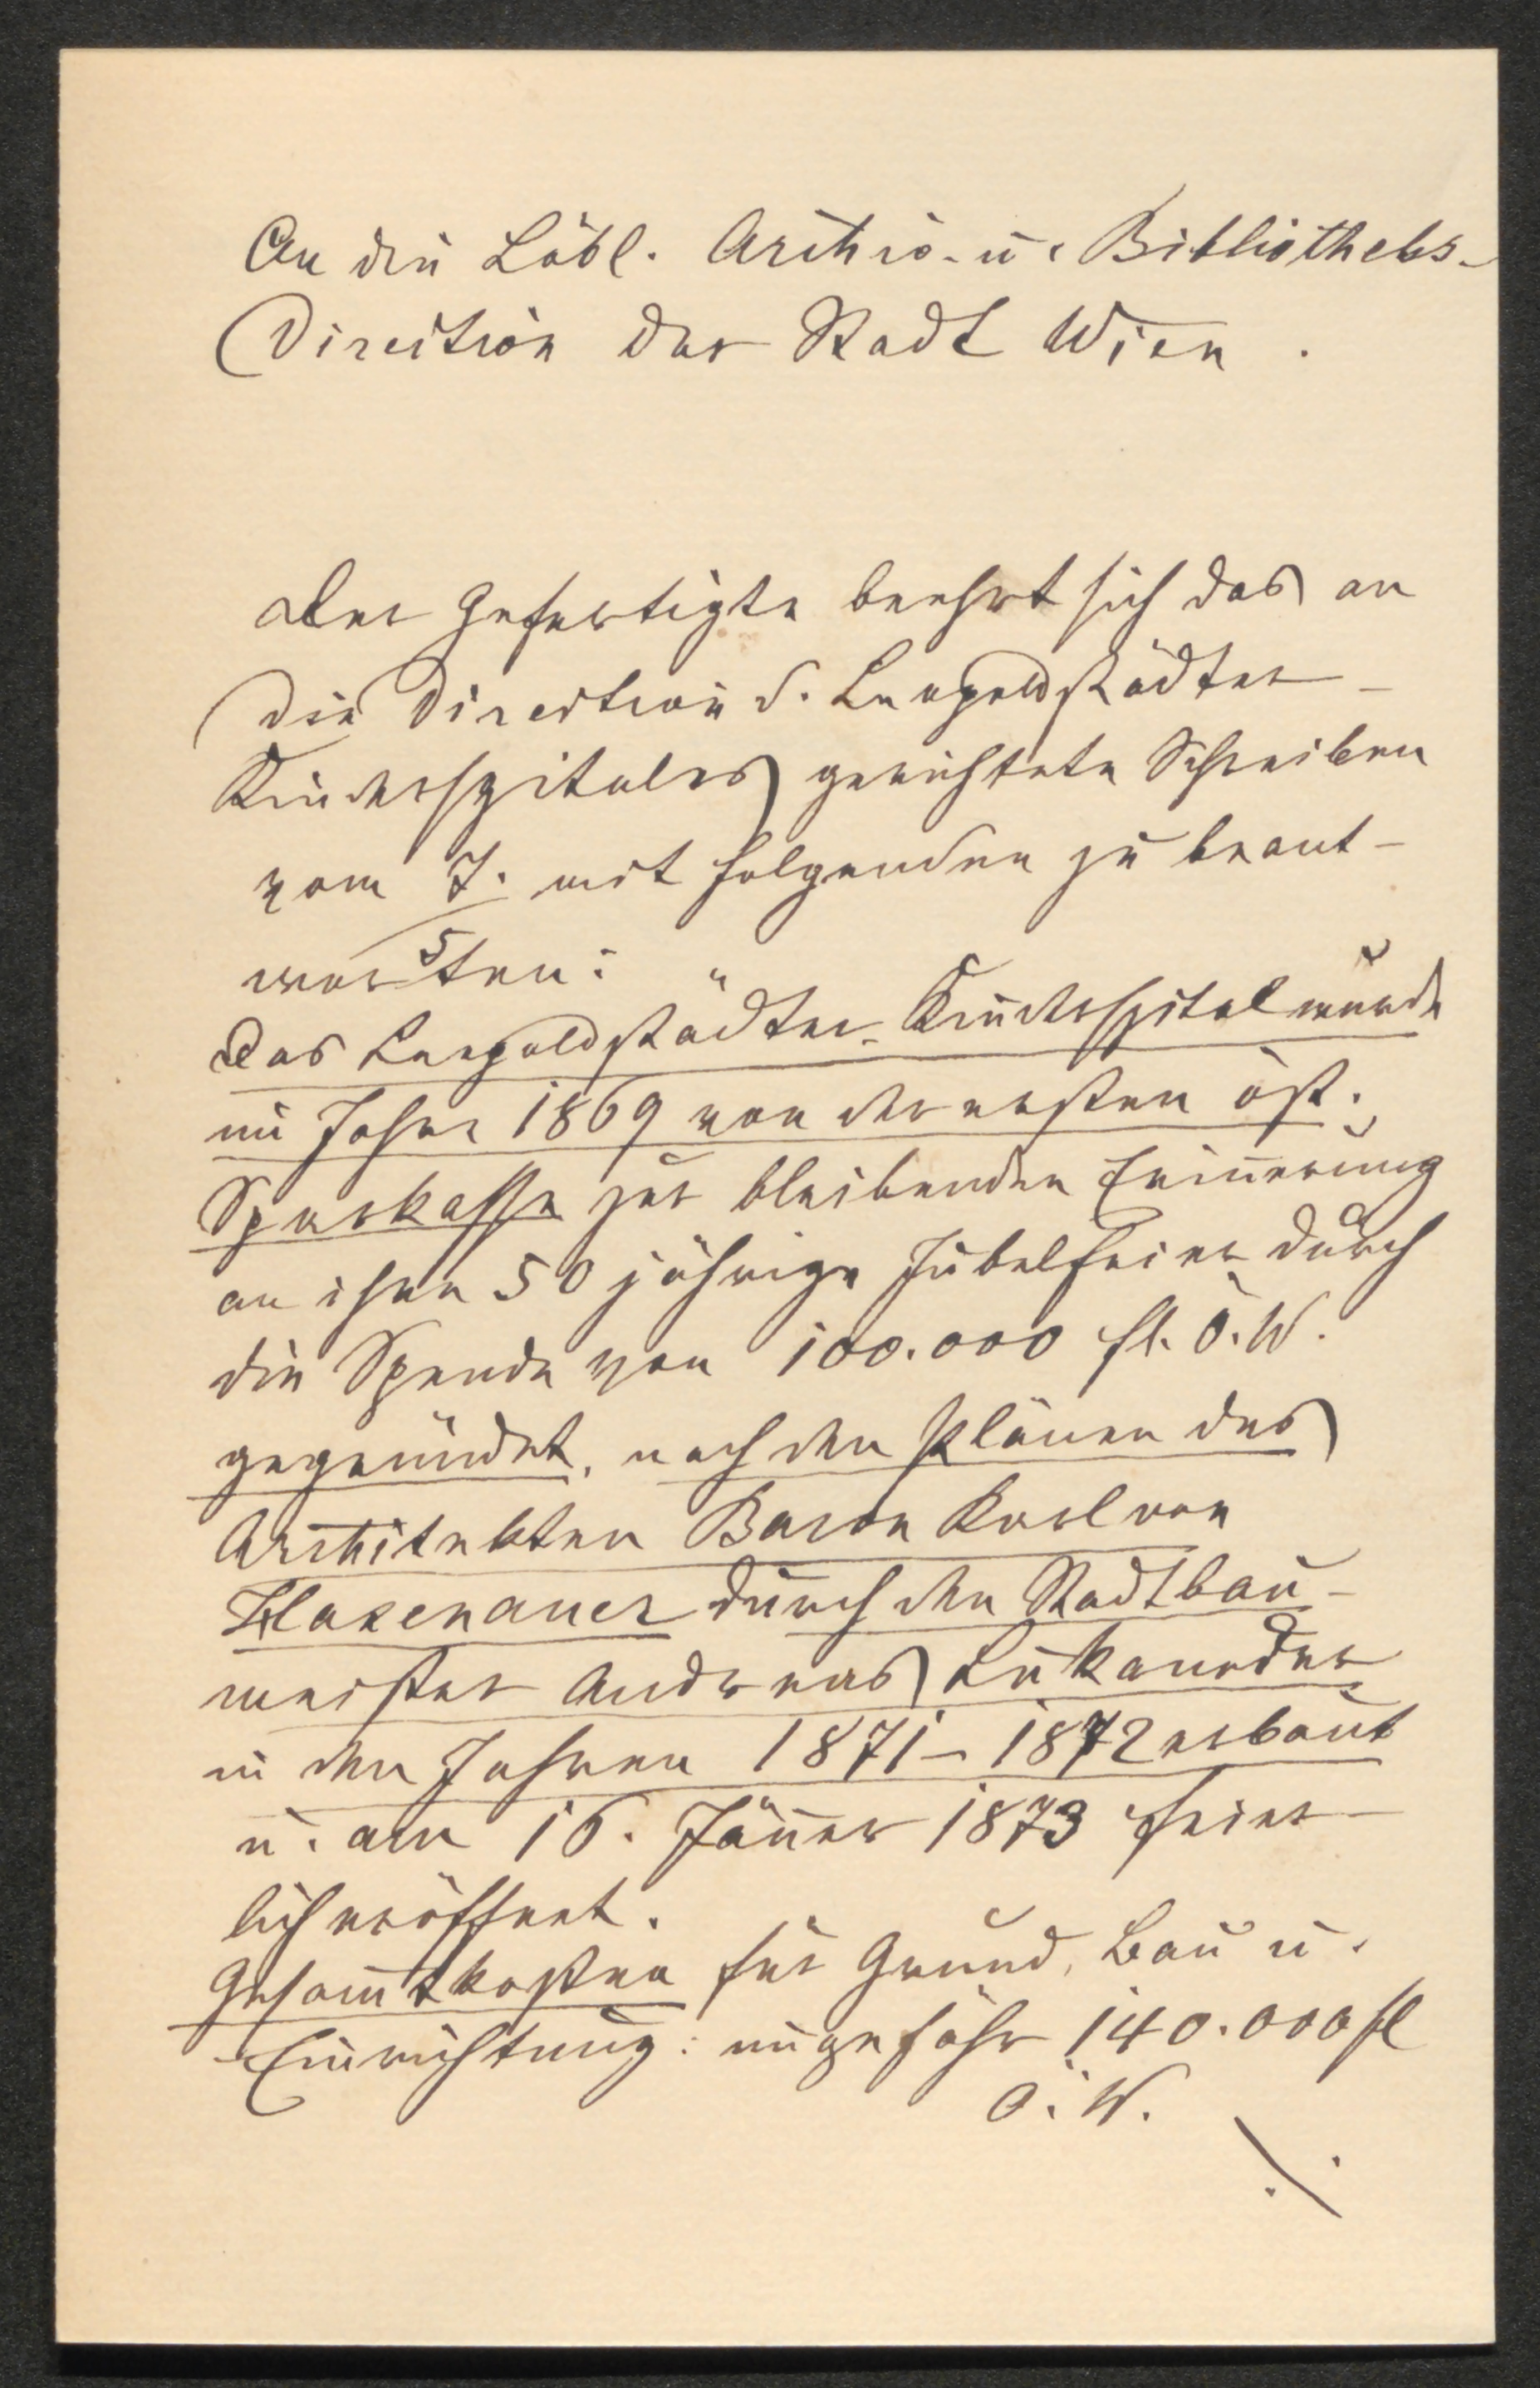 An die Löbl. Archiv- u. Bibliotheks-
Direction der Stadt Wien.
Der Gefertigte beehrt sich das an
die Direction d. Leopoldstädter-
Kinderspitales gerichtete Schreiben
vom 7./5 mit folgenden zu beant-
worten:
Das Leopoldstädter-Kinderspital wurde
im Jahre 1869 von der ersten öst.
Sparkasse zur bleibenden Erinnerung
an ihre 50 jährige Jubelfeier durch
die Spende von 100.000 fl. Ö. W.
gegründet, nach den Plänen des
Architekten Baron Karl von
Hasenauer durch den Stadtbau-
meister Andreas Lukaneder
in den Jahren 1871–1872 erbaut
u. am 16. Jänner 1873 feier-
lich eröffnet.
Gesam̅tkosten für Grund, Bau u.
Einrichtung: ungefähr 140.000 fl
Ö. W.
./.